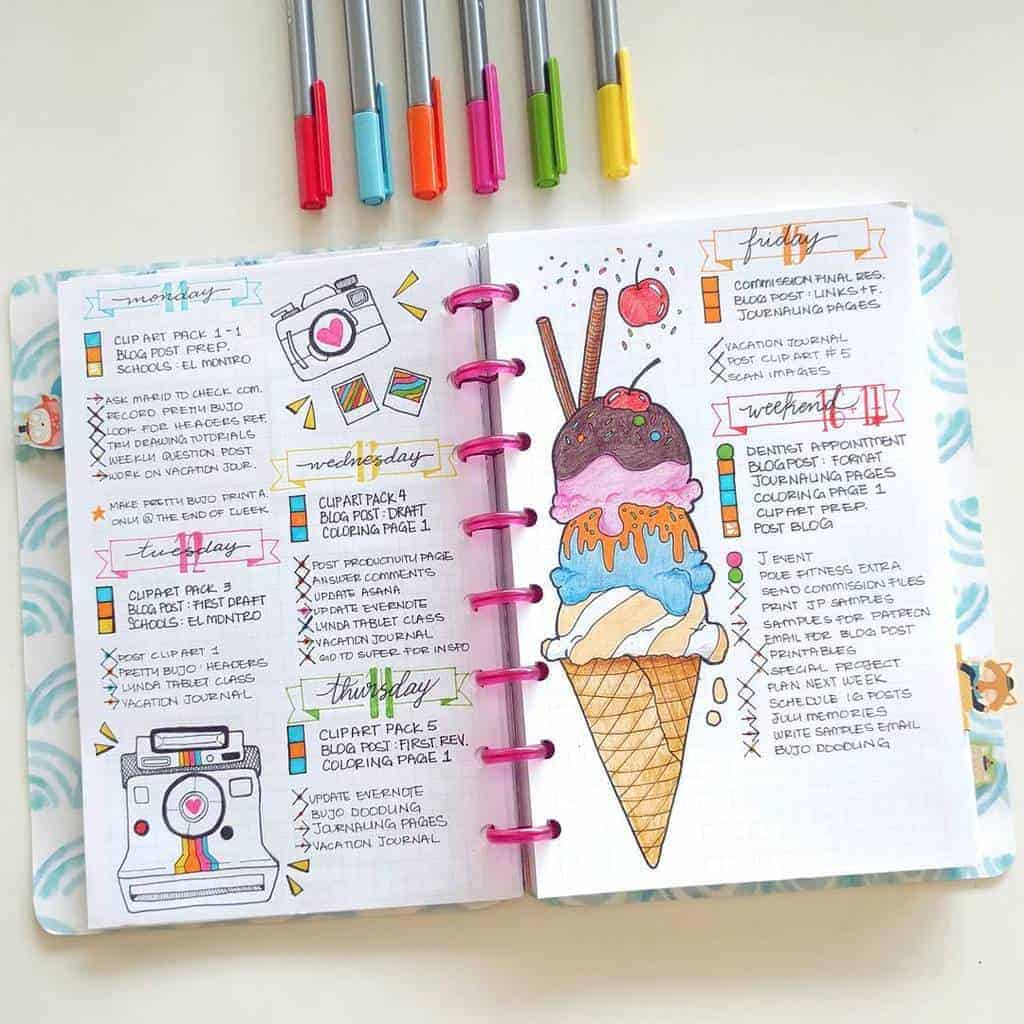 monday 11
CLIP ART PACK 1-1
BLOG POST PREP.
SCHOOLS: EL MONTRO
ASK MARID TO CHECK COM.
RECORD PRETTY BUJO
LOOK FOR HEADERS REF.
TRY DRAWING TUTORIALS
WEEKLY QUESTION POST
WORK ON VACATION JOUR.
MAKE PRETTY BUJO PRINTA.
ONLY @ THE END OF WEEK
tuesday 12
CLIPART PACK 3
BLOG POST: FIRST DRAFT
SCHOOLS: EL MONTRO
POST CLIP ART 1
PRETTY BUJO: HEADERS
LYNDA TABLET CLASS
VACATION JOURNAL
wednesday 13
CLIPART PACK 4
BLOG POST: DRAFT
COLORING PAGE 1
POST PRODUCTIVITY PAGE
ANSWER COMMENTS
UPDATE ASANA
UPDATE EVERNOTE
LYNDA TABLET CLASS
VACATION JOURNAL
GO TO SUPER FOR INSPO
thursday
CLIPART PACK 5
BLOG POST: FIRST REV.
COLORING PAGE 1
UPDATE EVERNOTE
BUJO DOODLING
JOURNALING PAGES
VACATION JOURNAL
friday 15
COMMISSION FINAL RES.
BLOG POST: LINKS + F.
JOURNALING PAGES
VACATION JOURNAL
POST CLIP ART #5
SCAN IMAGES
weekend 16 + 17
DENTIST APPOINTMENT
BLOGPOST: FORMAT
JOURNALING PAGES
COLORING PAGE 1
CLIPART PREP.
POST BLOG
J EVENT
POLE FITNESS EXTRA
SEND COMMISSION FILES
PRINT JP SAMPLES
SAMPLES FOR PATREON
EMAIL FOR BLOG POST
PRINTABLES
SPECIAL PROJECT
PLAN NEXT WEEK
SCHEDULE IG POSTS
JULY MEMORIES
WRITE SAMPLES EMAIL
BUJO DOODLING